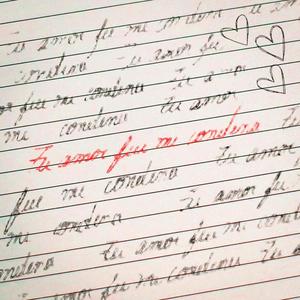 Tu amor fue mi condena
condena Tu amor fue
fue mi condena Tu amor
mi condena Tu amor
Tu amor fue mi condena
fue mi condena Tu amor
mi condena Tu amor fue
condena Tu amor fue mi
Tu amor fue mi condena Tu